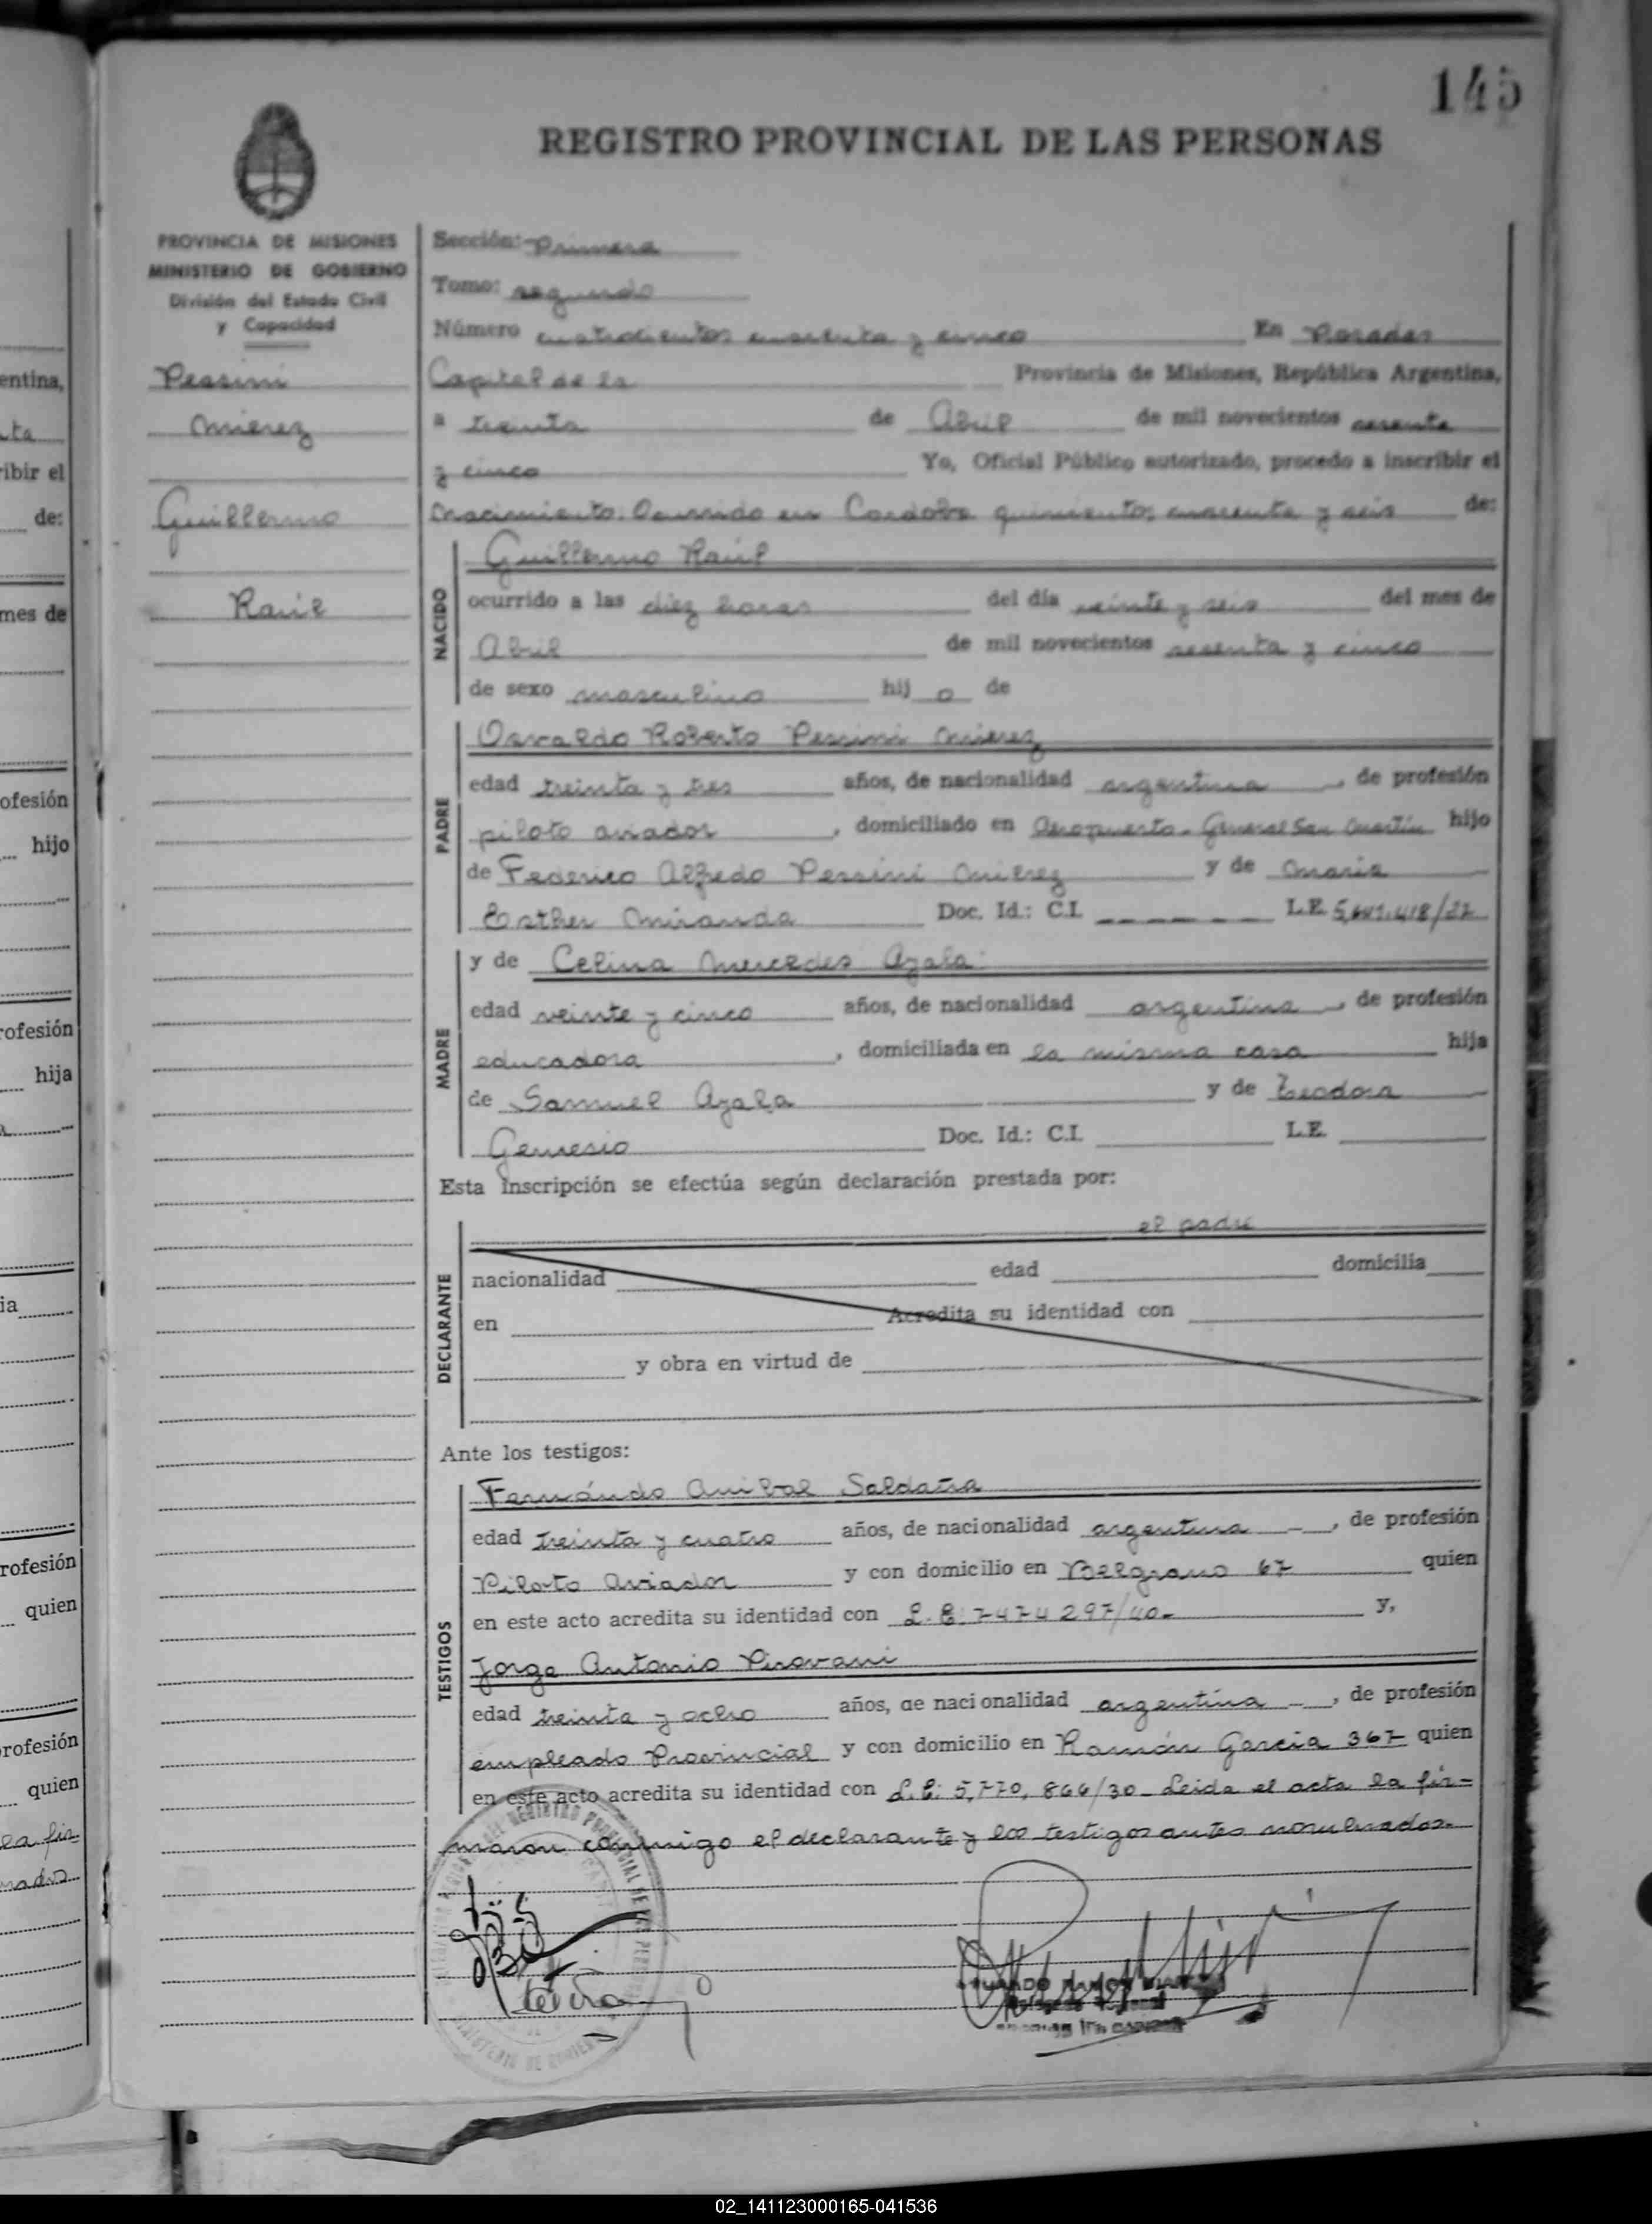 145
REGISTRO PROVINCIAL DE LAS PERSONAS
PROVINCIA DE MISIONES
MINISTERIO DE GOBIERNO
División del Estado Civil
y Capacidad
Pessini
Mierez
Guillermo
Raúl
Sección: Primera
Tomo: segundo
Número cuatrocientos cuarenta y cinco En Posadas
Capital de la Provincia de Misiones, República Argentina,
a treinta de Abril de mil novecientos sesenta
y cinco Yo, Oficial Público autorizado, procedo a inscribir el
Nacimiento. Ocurrido en Cordoba quinientos cuarenta y seis de:
NACIDO
Guillermo Raúl
ocurrido a las diez horas del día veinte y seis del mes de
Abril de mil novecientos sesenta y cinco
de sexo masculino hij o de
PADRE
Osvaldo Roberto Pessini Mierez
edad treinta y tres años, de nacionalidad argentina, de profesión
piloto aviador, domiciliado en Aeropuerto - General San Martín hijo
de Federico Alfredo Pessini Mierez y de Maria
Esther Miranda Doc. Id.: C.I. — — — — — L.E.
MADRE
y de Celina Mercedes Ayala
edad veinte y cinco años, de nacionalidad argentina, de profesión
educadora, domiciliada en la misma casa hija
de Samuel Ayala y de Teodora
Genesio Doc. Id.: C.I. L.E.
Esta inscripción se efectúa según declaración prestada por:
DECLARANTE
el padre
nacionalidad edad domicilia
en Acredita su identidad con
y obra en virtud de
Ante los testigos:
TESTIGOS
Fernándo Anibal Saldaña
edad treinta y cuatro años, de nacionalidad argentina -, de profesión
Piloto Aviador y con domicilio en Belgrano 67 quien
en este acto acredita su identidad con L.E. 7474297/40- y,
Jorge Antonio Pirovani
edad treinta y ocho años, de nacionalidad argentina -, de profesión
empleado Provincial y con domicilio en Ramón Garcia 367 quien
en este acto acredita su identidad con L.E. 5,770,866/30- Leida el acta la fir-
maron conmigo el declarante y los testigos antes nombrados.
02_141123000165-041536